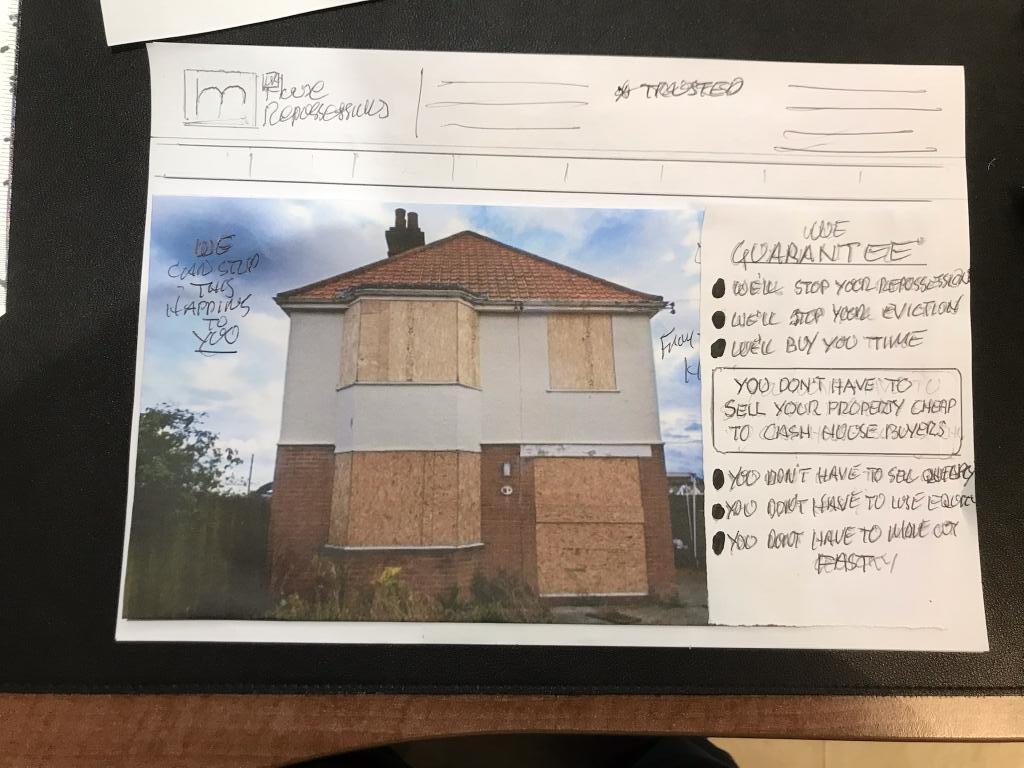 House
Repossessions
TRUSTED
WE
CAN STOP
THIS
HAPPING
TO
YOU
WE
GUARANTEE
WE'LL STOP YOUR REPOSSESSION
WE'LL STOP YOUR EVICTION
WE'LL BUY YOU TIME
YOU DON'T HAVE TO
SELL YOUR PROPERTY CHEAP
TO CASH HOUSE BUYERS
YOU DON'T HAVE TO SELL
YOU DON'T HAVE TO LOSE EQUITY
YOU DONT HAVE TO MOVE OUT